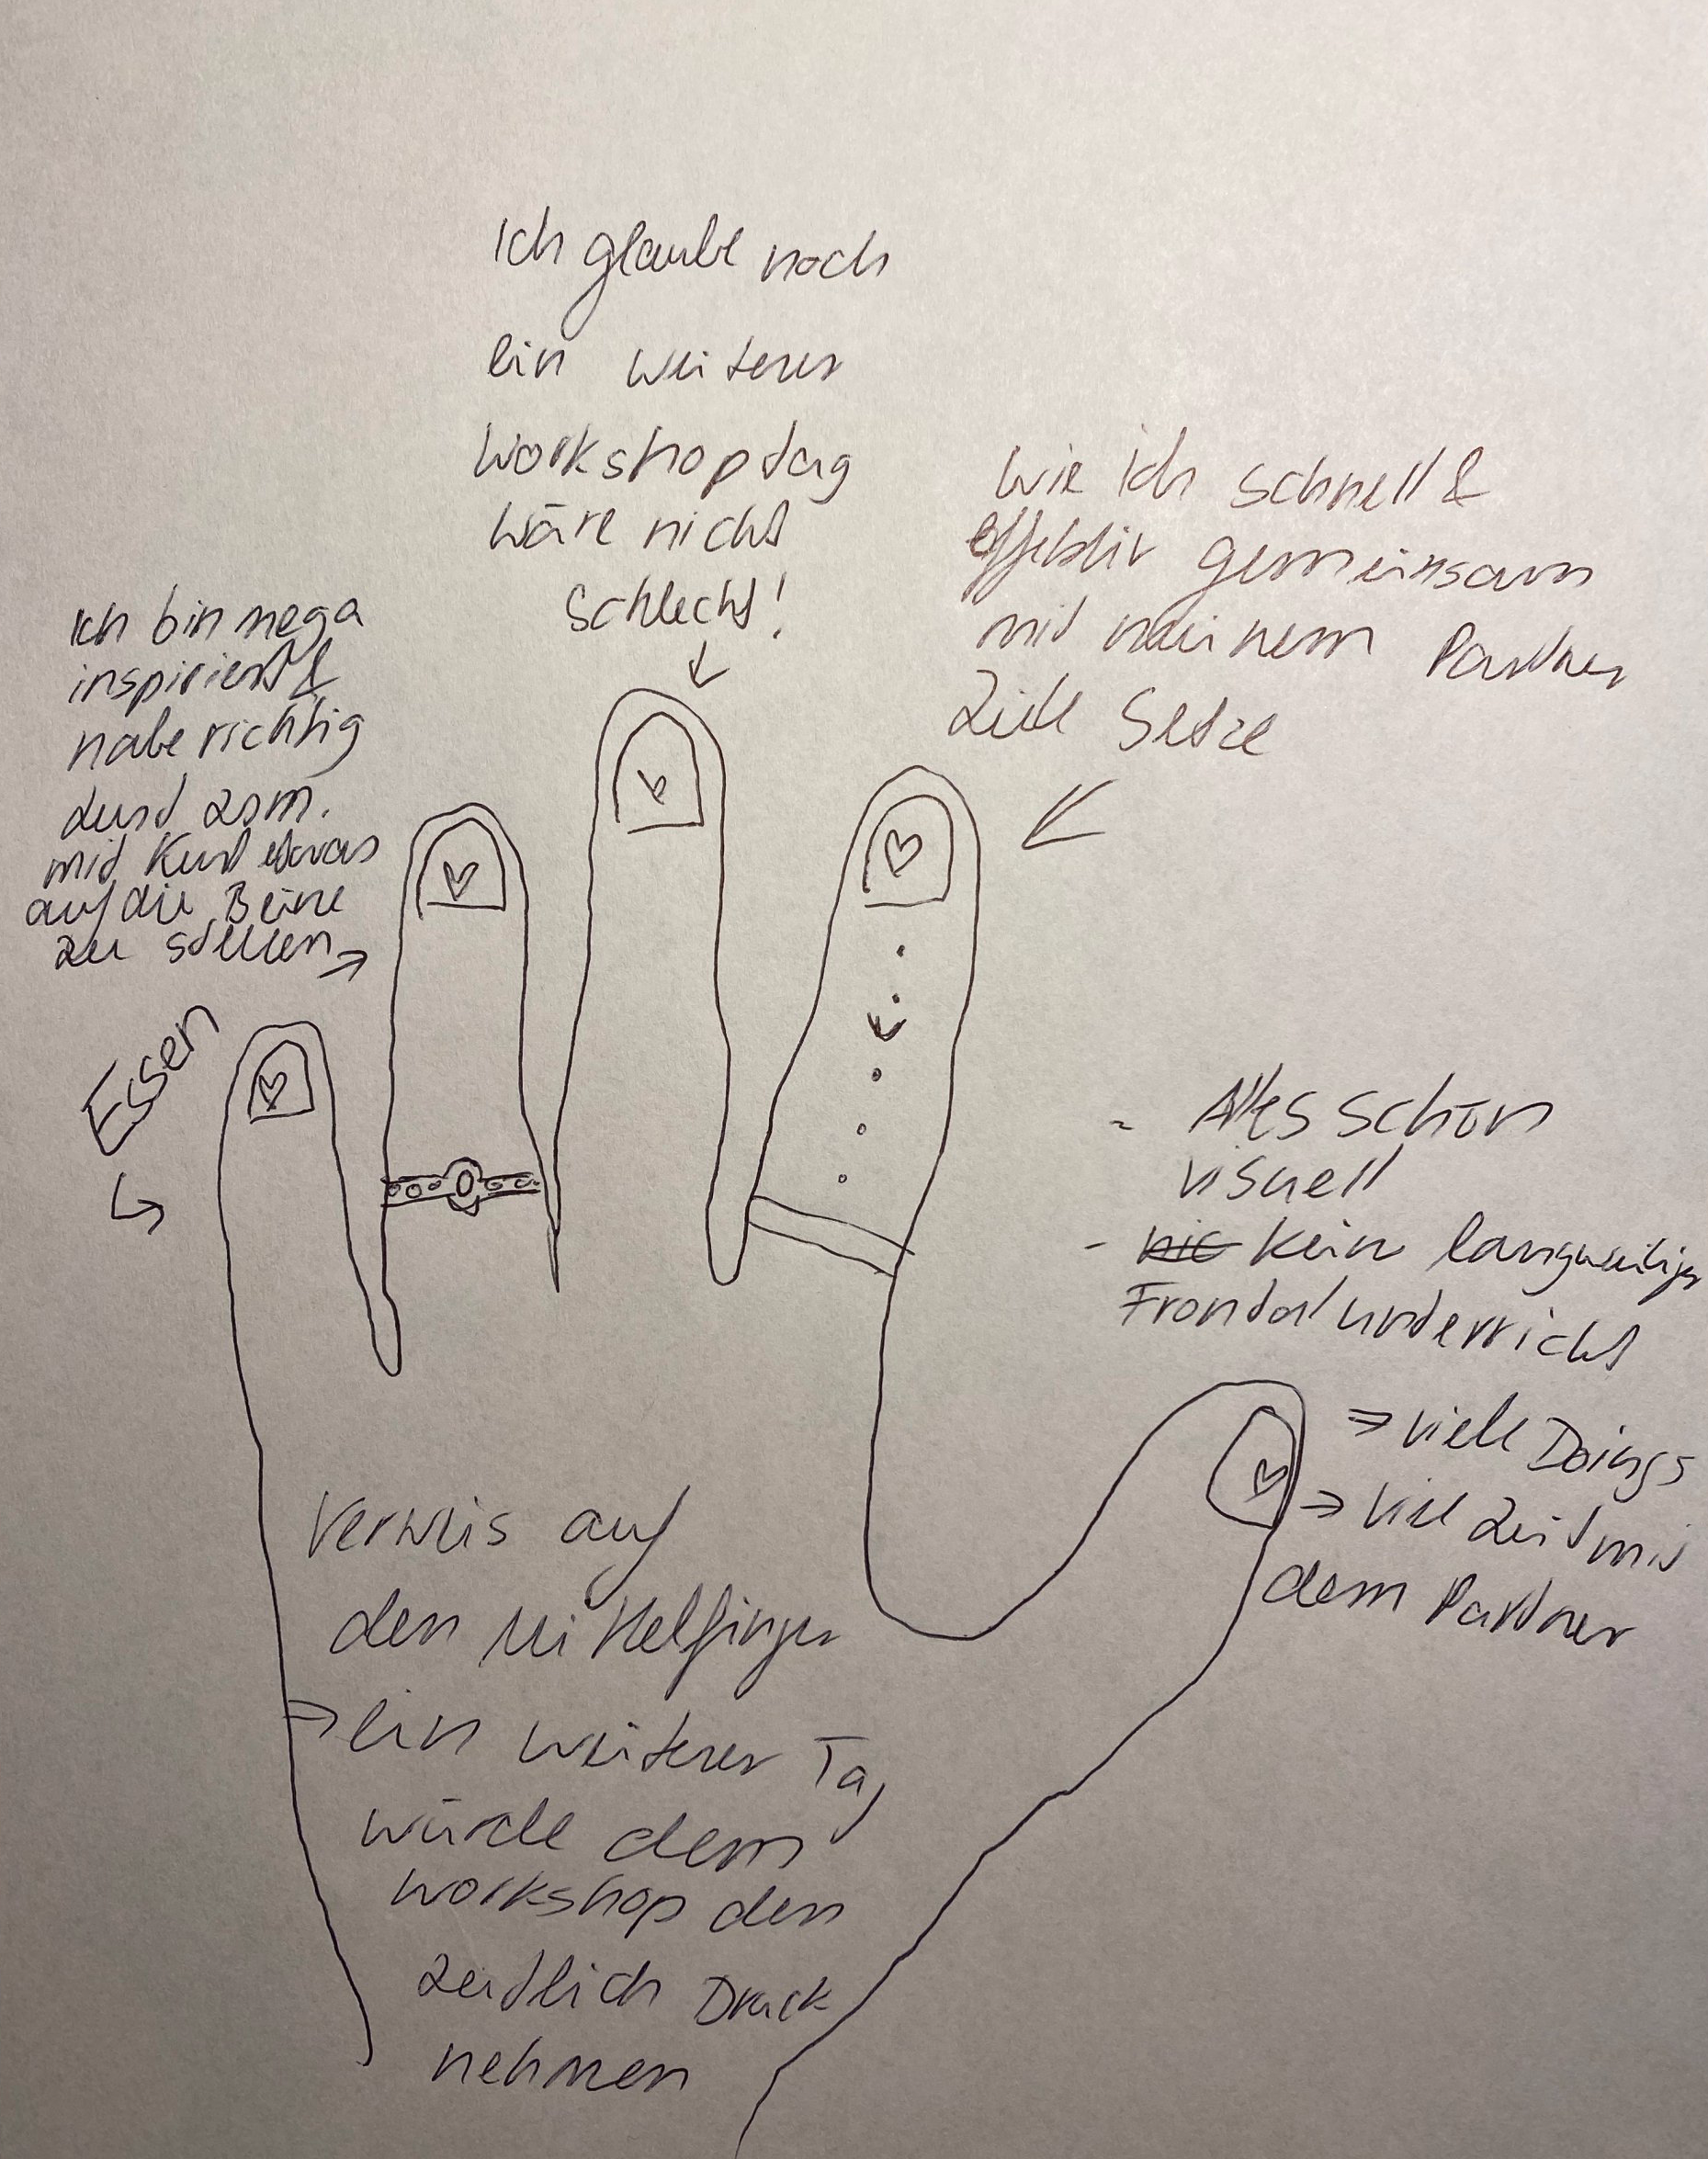 Ich glaube noch
ein weiterer
Workshoptag
wäre nicht
schlecht!
Wie ich schnell &
effektiv gemeinsam
mit meinem Partner
Ziele Setze
Ich bin mega
inspiriert &
habe richtig
Lust zsm.
mit Kurt etwas
auf die Beine
zu stellen
Essen
- Alles schön
visuell
- nic kein langweiliger
Frontalunterricht
⇒ viele Doings
⇒ viel Zeit mit
dem Partner
Verweis auf
den Mittelfinger
⇒ ein weiterer Tag
würde dem
Workshop den
zeitlich Druck
nehmen